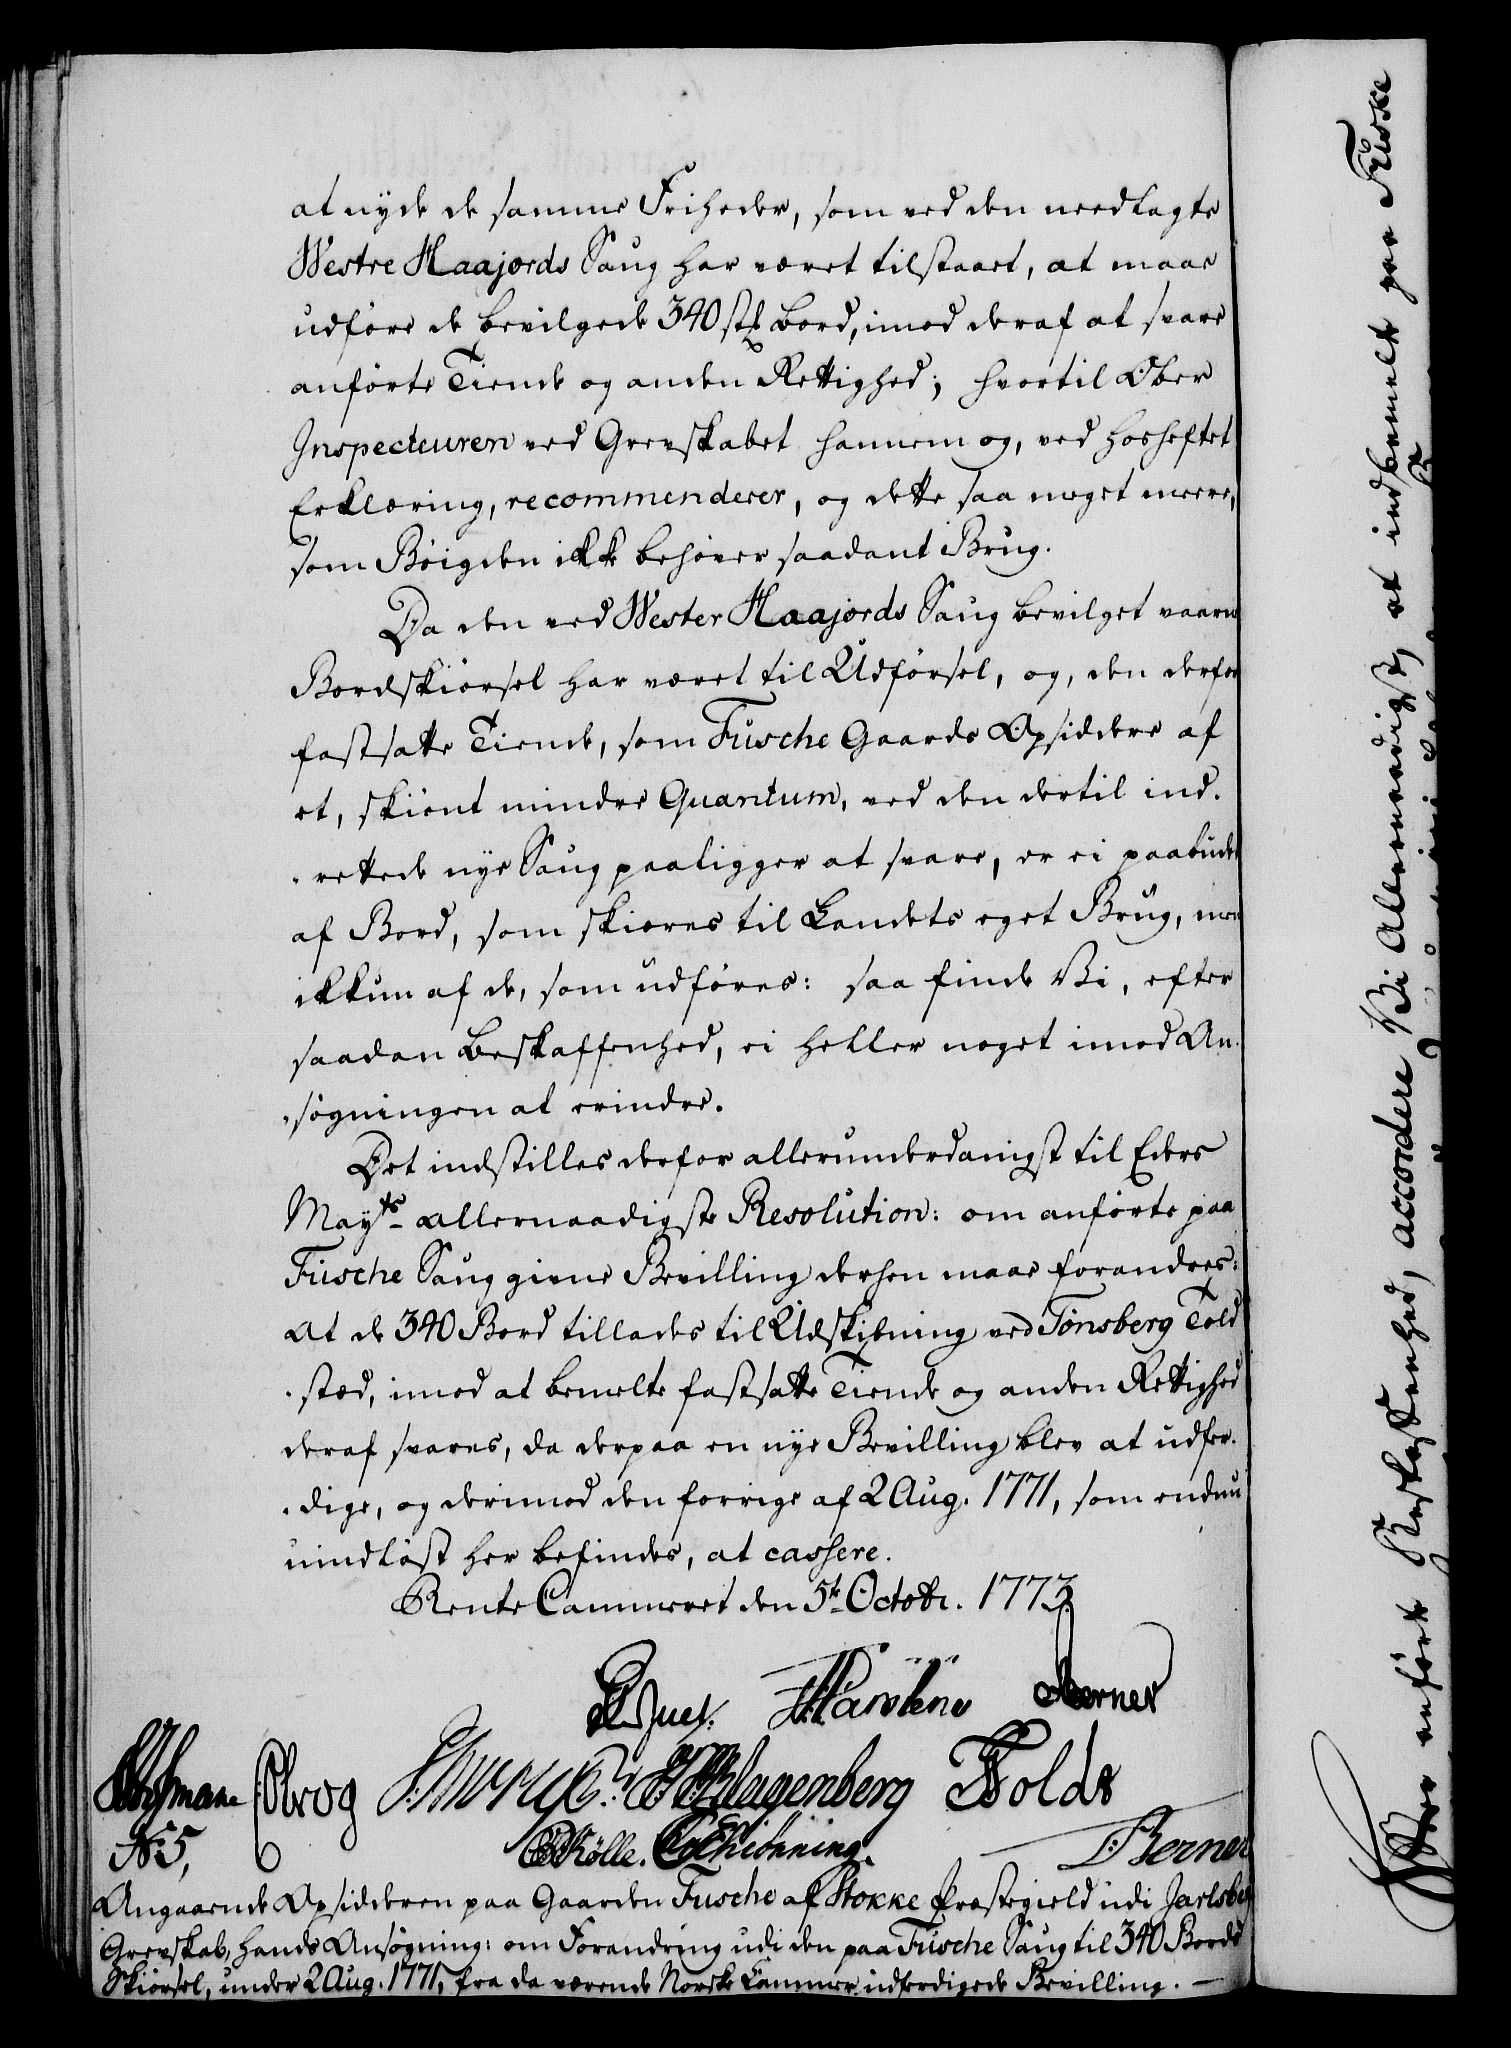 at nyde de samme Friheder, som ved den needlagte
Westre Haajords Saug har været tilstaaet, at maae
udføre de bevilgede 340 stk Bord, imod deraf at svare
anførte Tiende og anden Rettighed; hvortil Ober
Inspecteuren ved Grevskabet hannem og, ved hosheftet
Erklæring, recommenderer, og dette saa meget meere,
som Bøigden ikke behøver saadant Brug.
Da den ved Wester Haajords Saug bevilget værne
Bordskiørsel har været til Udførsel, og, den derfor
fastsatte Tiende, som Fusche Gaards Opsiddere af
et, skiønt mindre Quantum, ved den dertil ind-
rettede nye Saug paaligger at svare, er ei paabuden
af Bord, som skiæres til Landets eget Brug, men
ikkun af de, som udføres: saa finde Vi, efter
saadan Beskaffenhed, ei heller noget imod An-
søgningen at erindre.
Det indstilles derfor allerunderdanigst til Eders
Mayts allernaadigste Resolution: om anførte paa
Fusche Saug givne Bevilling derhen maae forandres:
At de 340 Bord tillades til Udskibning ved Tønsberg Told-
stæd, imod at bemelte fastsatte Tiende og anden Rettighed
deraf svares, da derpaa en nye Bevilling blev at udfer-
dige, og derimod den forrige af 2 Aug. 1771, som endnu
uindløst her befindes, at cassere.
Rente Cammeret den 5te Octobr. 1773.
Juel. Berner
Klagenberg Holde
Berner
No 5,
Angaaende Opsidderen paa Gaarden Fusche af Stokke Præstegield udi Jarlsberg
Grevskab, hands Ansøgning: om Forandring udi den paa Fusche Saug til 340 Bords
Skiørsel, under 2 Aug. 1771, fra da værende Norske Cammer udferdigede Bevilling.
anførte Beskaffenhed, accordere Vi Allernaadigst, at indbemelte paa Fuske